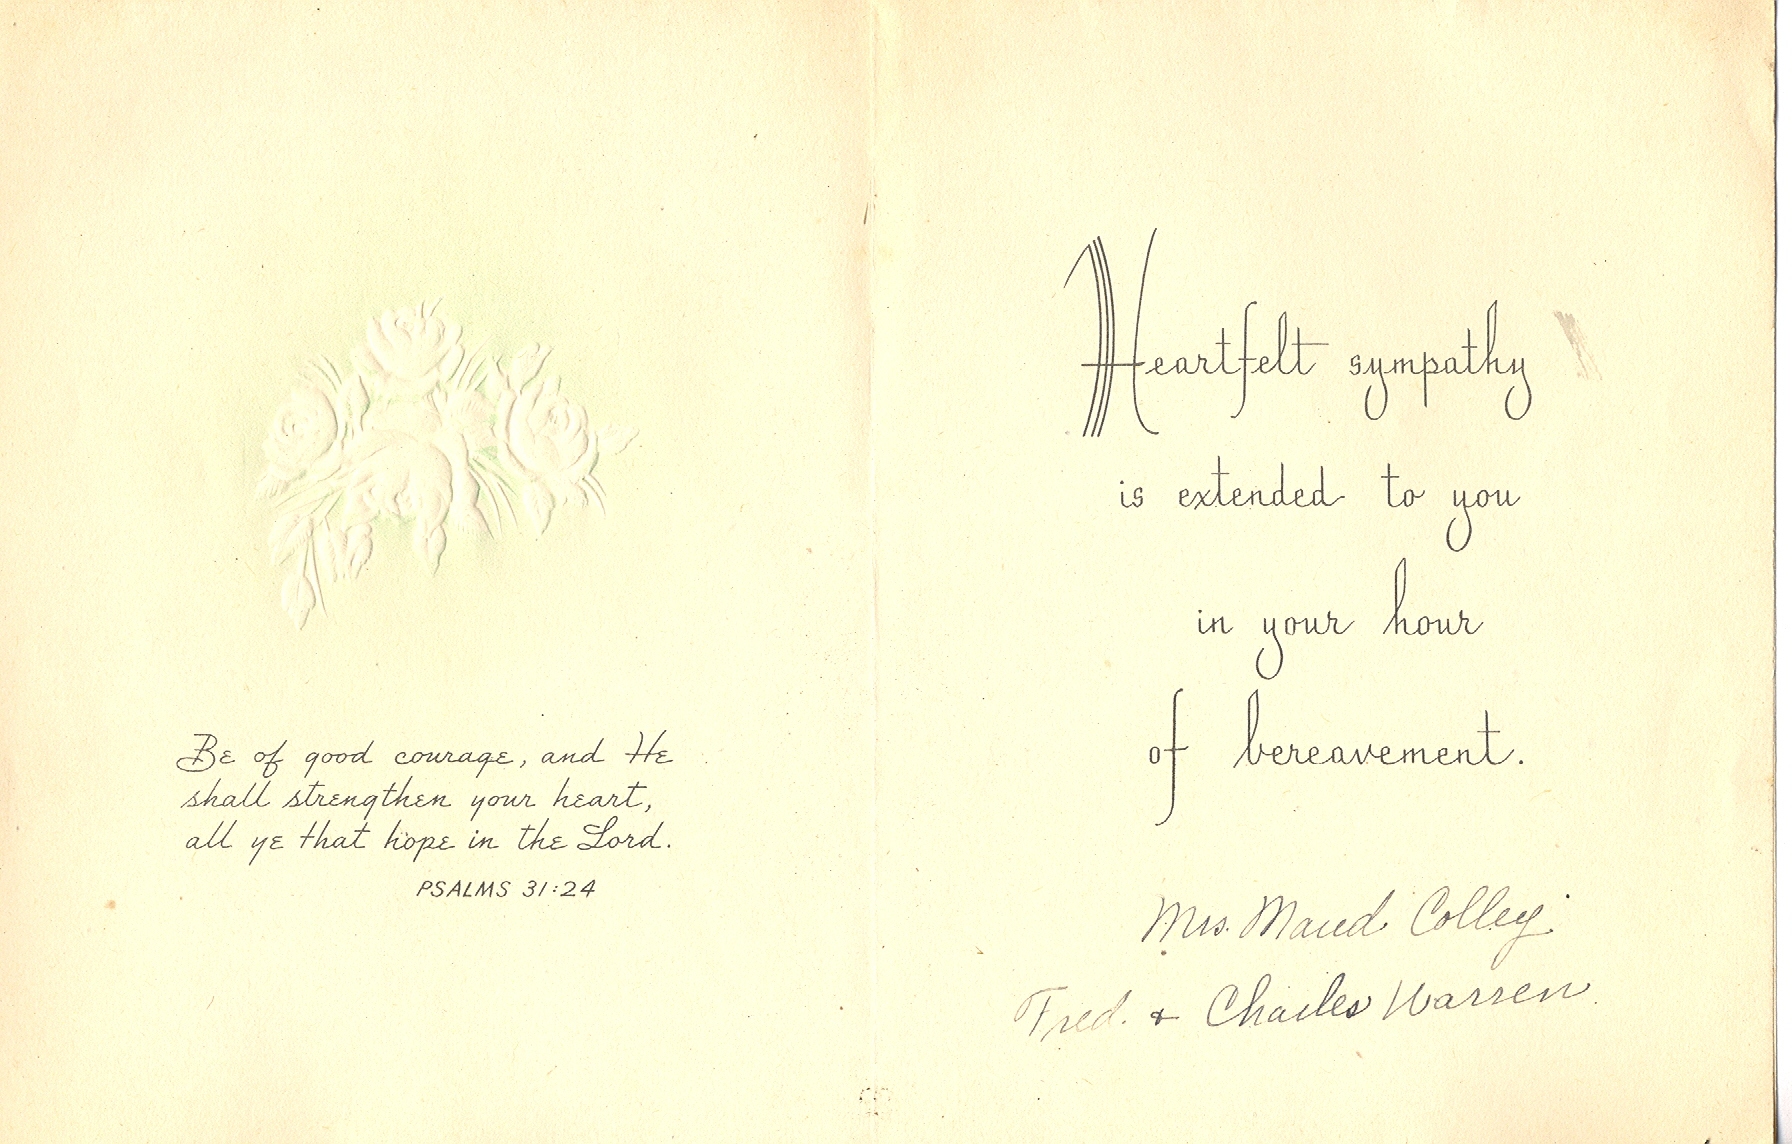 Be of good courage, and He
shall strengthen your heart,
all ye that hope in the Lord.
PSALMS 31:24
Heartfelt sympathy
is extended to you
in your hour
of bereavement.
Mrs. Maud Colley
Fred. + Charles Warren